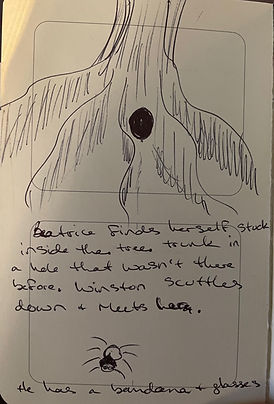 Beatrice finds herself stuck
inside the tree trunk in
a hole that wasn't there
before. Winston scuttles
down + meets her.
He has a bandana + glasses